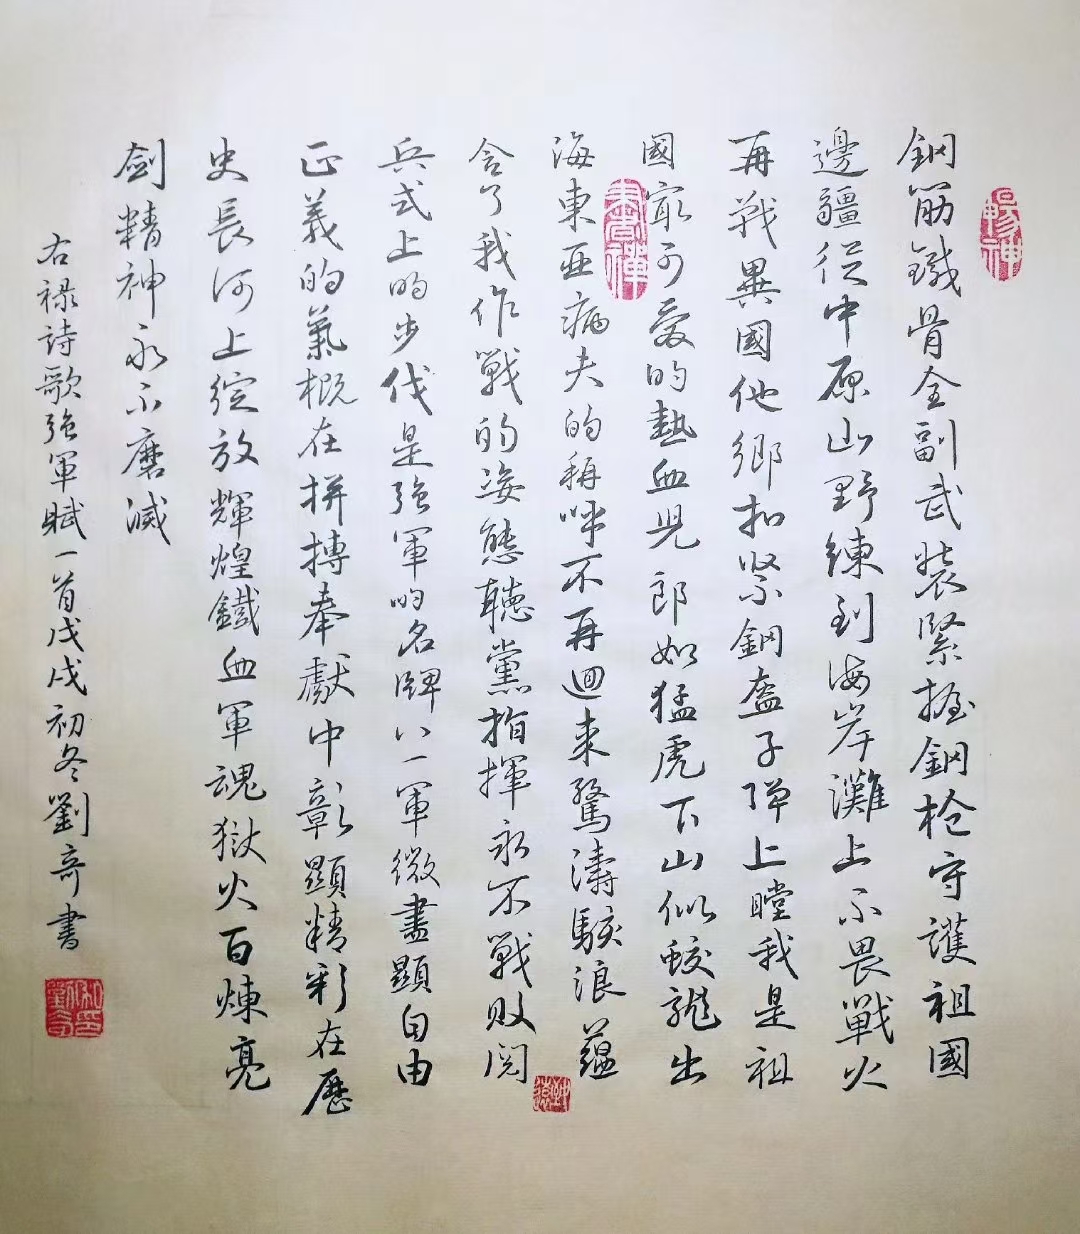 暢神
鋼筋鐵骨全副武裝緊握鋼枪守護祖國
邊疆從中原山野練到海岸灘上不畏戰火
再戰異國他鄉扣緊鋼盔子彈上膛我是祖
國最可愛的熱血児郎如猛虎下山似蛟龍出
海東亚病夫的稱呼不再迴來驚濤駭浪蘊
含了我作戰的姿態聽黨指揮永不戰敗閱
兵式上的步伐是强軍的名牌八一軍徽盡顯自由
正義的氣概在拼搏奉獻中彰顯精彩在歷
史長河上綻放輝煌鐵血軍魂狱火百煉亮
劍精神永不磨滅
右禄詩歌强軍賦一首戊戌初冬劉奇書
書禪